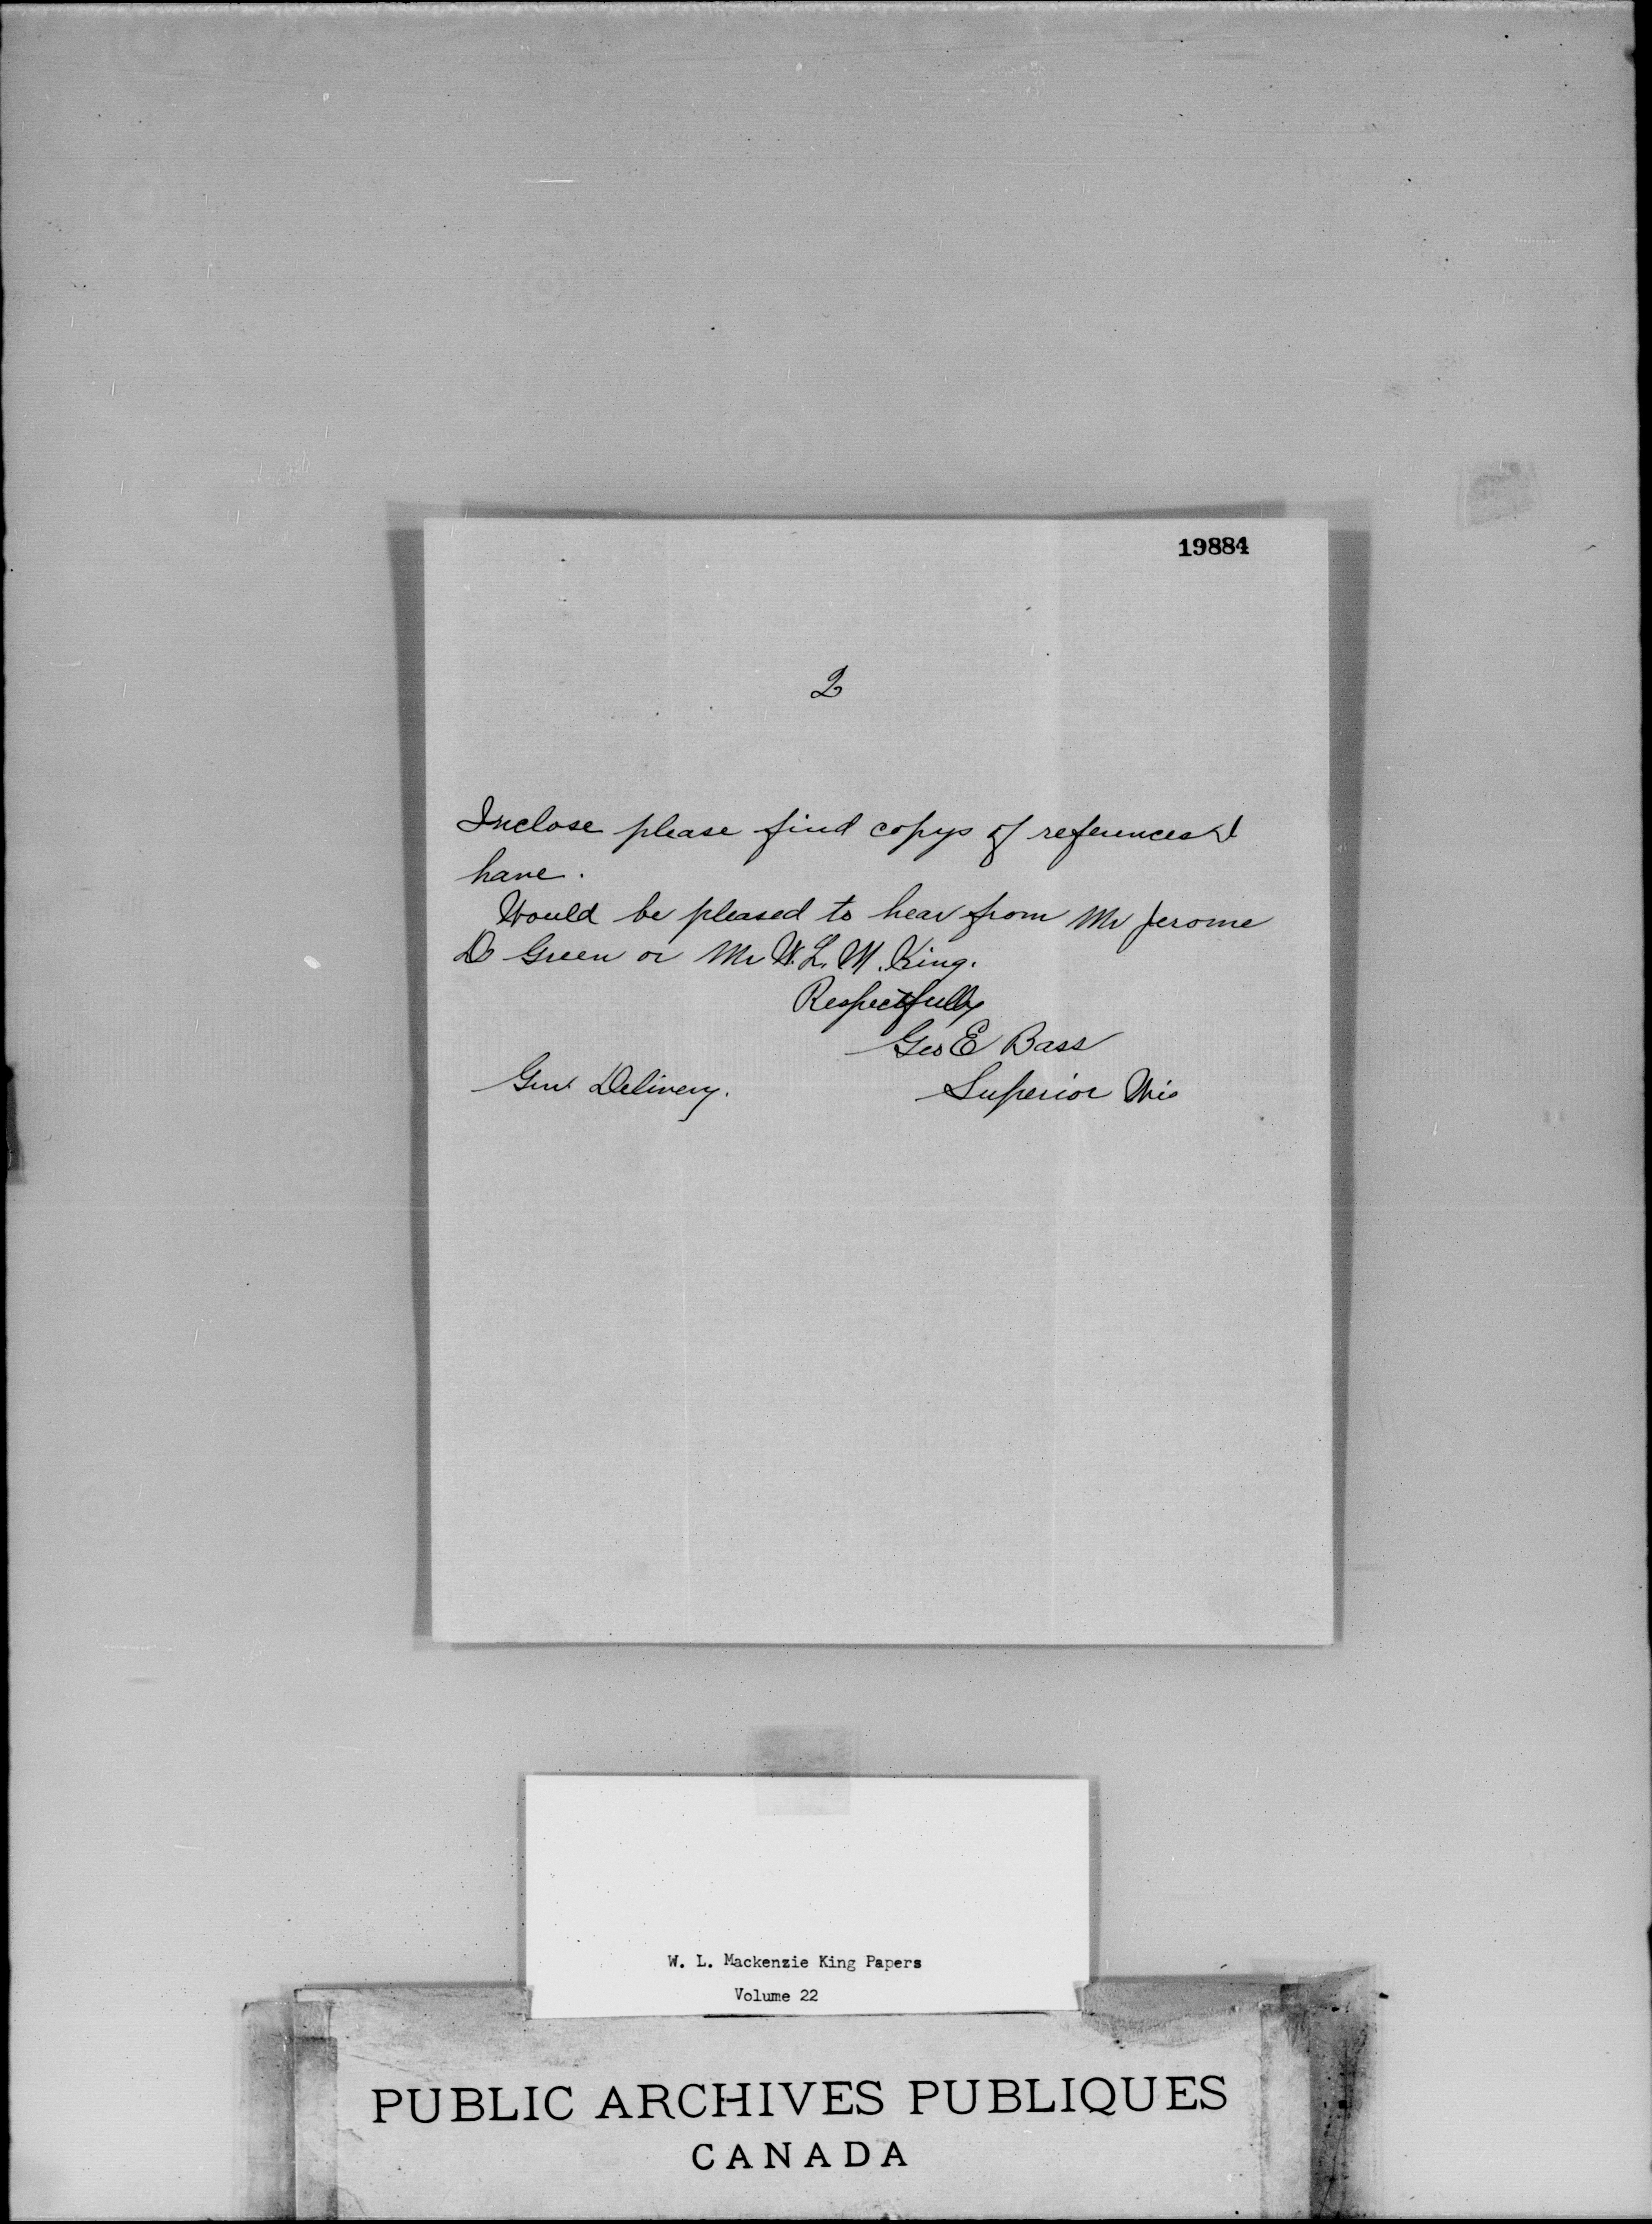 19884
2
Inclose please find copys of references I
have.
Would be pleased to hear from Mr Jerome
D Green or Mr W. L. M. King.
Respectfully
Geo E Bass
Genl Delivery.
Superior Wis
W. L. Mackenzie King Papers
Volume 22
PUBLIC ARCHIVES PUBLIQUES
CANADA